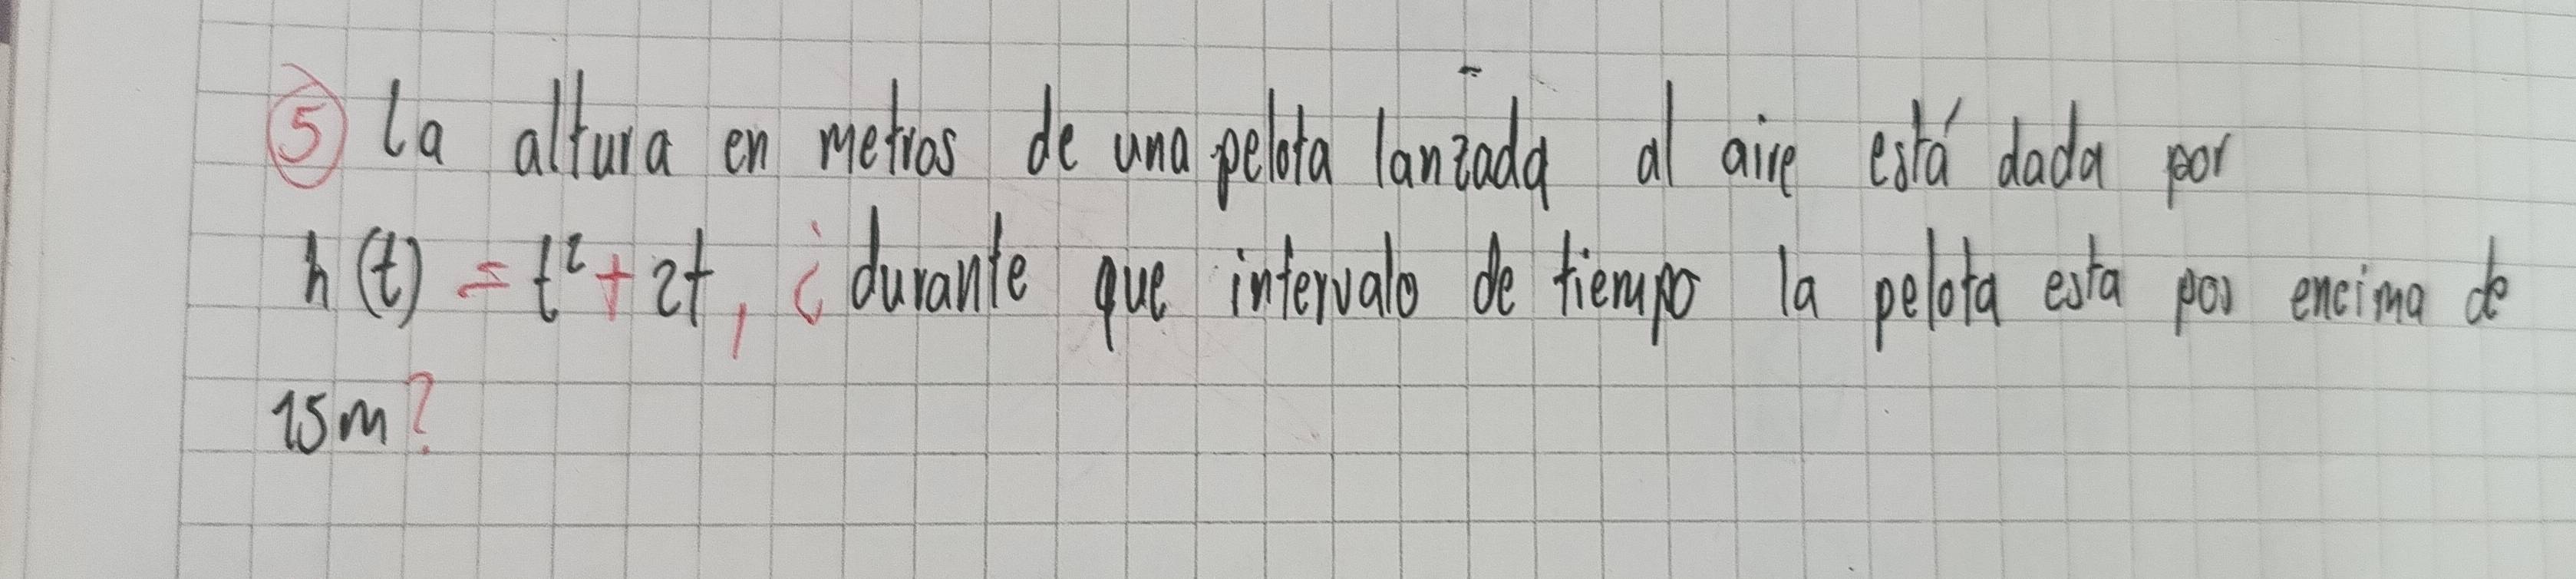 ⑤ La altura en metros de una pelota lanzada al aire está dada por
h(t) = t² + 2t, ¿durante que intervalo de tiempo la pelota esta por encima de
15m?